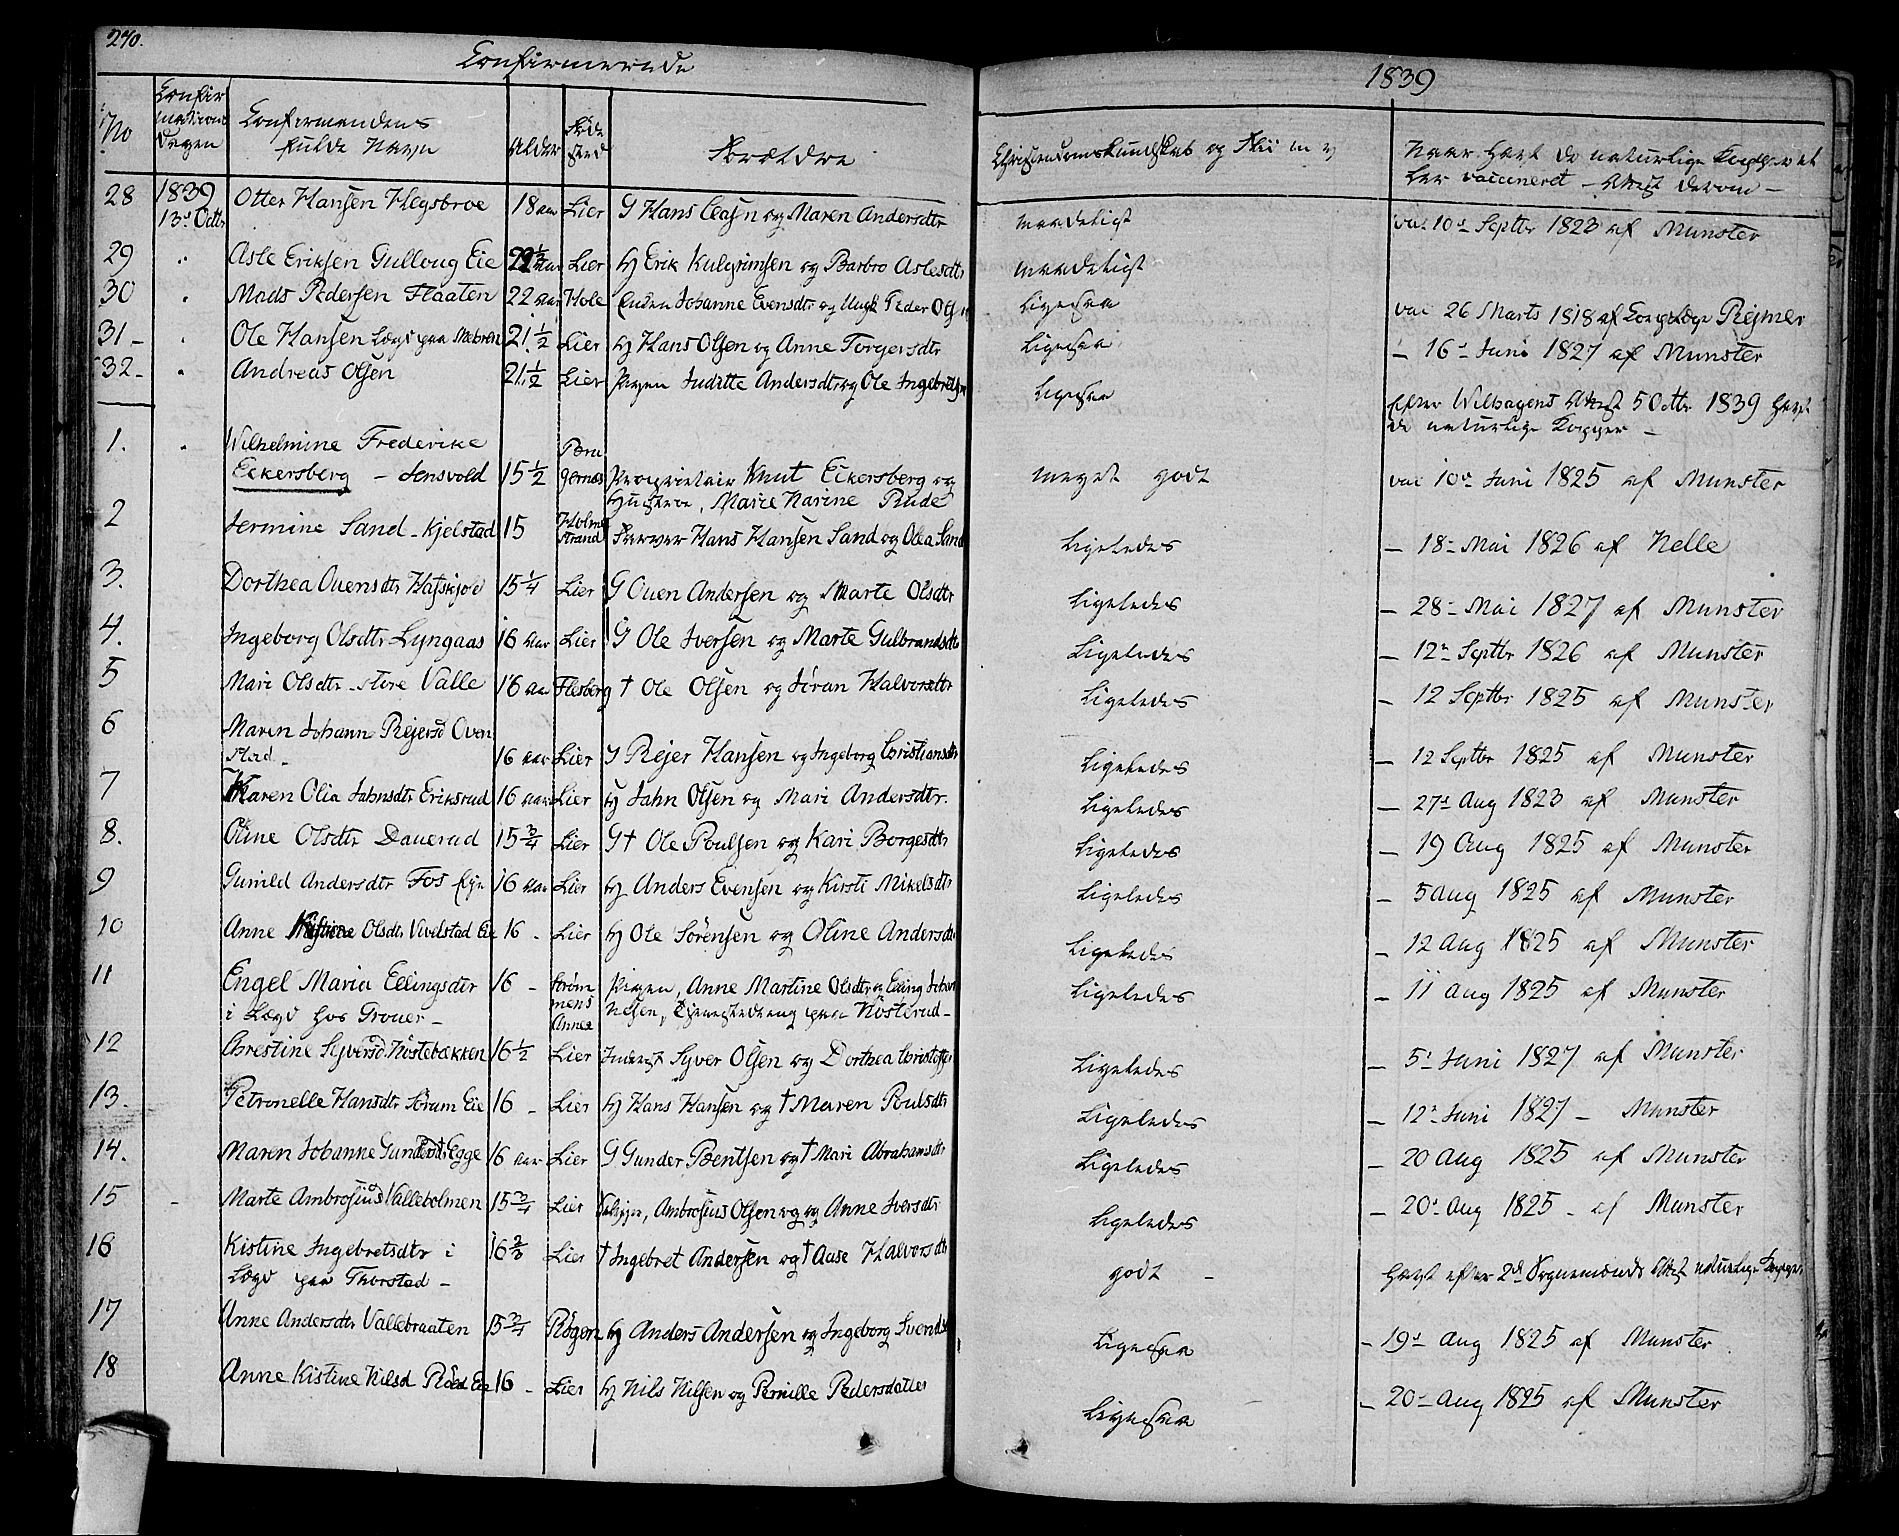 270.
Confirmerede
1839
No Confirmations Dagen Confirmandens fulde Navn Alder Føde Sted Forældre Christendomskundskab og Flii m v Naar havt de naturlige Kopper eller vaccineret – Attest derom –
28 1839 13de Octbr Otter Hansen Hegsbroe 18 aar Lier G Hans Clasen og Maren Andersdtr maadeligt vac 10de Septbr 1823 af Munster
29 " Asle Eriksen Gulloug Eie aar Lier Hj Erik Kulgrimsen og Barbro Aslesdtr maadeligt
30 " Mads Pedersen Flaaten 22 aar Hole Enken Johanne Evensdtr og Ungk Peder Olsen ligesaa vac 26 Marts 1818 af Rejmer
31 – " Ole Hansen Lægd paa 21 ½ Lier Hj Hans Olsen og Anne Torgersdtr ligesaa – 16de Juni 1827 af Munster
32 – " Andreas Olsen 21 ½ Lier Pigen Juditte Andersdtr og Ole Ingebretsen ligesaa efter Wilhagens Attest 5 Octbr 1839 havt
de naturlige Kopper –
1. " Wilhelmine Frederike
Eckersberg – Sensvold 15 ½ Porsgrund Proprietair Knut Eckersberg og meget godt vac 10de Juni 1825 af Munster
Hustroe, Marie Narine Rude
2 Jermine Sand – Kjelstad 15 Holmestrand Hans Hansen Sand og Olea Sand ligeledes – 18de Mai 1826 af Nelle
3. Dorthea Ouensdtr Hafskjold 15 ¼ Lier G Ouen Andersen og Marte Olsdtr ligeledes – 28de Mai 1827 af Munster
4. Ingeborg Olsdtr Lyngaas 16 aar Lier G Ole Iversen og Marte Gulbrandsdtr ligeledes – 12te Septbr 1826 af Munster
5 Mari Olsdtr Store Valle 16 aar Flesberg † Ole Olsen og Jøran Halvorsdtr ligeledes – 12 Septbr 1825 af Munster
6 Maren Johann Rejersd Oven
stad – 16 aar Lier G Rejer Hansen og Ingeborg Christiansdtr ligeledes – 12 Septbr 1825 af Munster
7 Karen Olia Jahnsdtr Eriksrud 16 aar Lier Hj Jahn Olsen og Mari Andersdtr. ligeledes – 27de Aug 1823 af Munster
8. Oline Olsdtr Dauerud 15 ¾ Lier G † Ole Poulsen og Kari Borgesdtr ligeledes – 19 Aug 1825 af Munster
9 Gunild Andersdtr Fos Eje 16 aar Lier Hj Anders Evensen og Kirsti Mikelsdtr ligeledes – 5 Aug 1825 af Munster
10 Anne Kistine Olsdtr Vivelstad Eie 16 – Lier Hj Ole Sörensen og Oline Andersdtr ligeledes – 12 Aug 1825 af Munster
11 Engel Maria Ellingsdtr 16 – Strømmens Annex Pigen, Anne Martine Olsdtr og Elling Johan ligeledes – 11 Aug 1825 af Munster
i Lægd hos Grouer – nesen, Tjenestedreng paa Nösterud –
12 Chrestine Syversd Nöstebækken 16 ½ Lier Inderst Syver Olsen og Dorthea Christoffersd ligeledes – 5te Juni 1827 af Munster
13. Petronelle Hansdtr Sörum Eie 16 – Lier Hj Hans Hansen og † Maren Poulsdtr ligeledes – 12te Juni 1827 – Munster
14. Maren Johanne Gundersdtr Egge 16 aar Lier G Gunder Bentsen og † Mari Abrahamsdtr ligeledes – 20 Aug 1825 af Munster
15 – Marte Ambrosiusd Valleholmen 15 ¾ Lier Ambrosius Olsen og og Anne Iversdtr ligeledes – 20de Aug 1825 – af Munster
16 Kistine Ingebretsdtr i 16 ⅔ Lier † Ingebret Andersen og † Aase Halvorsdtr godt – havt efter 2de Sognemænds Attest naturlige Kopper
Lægd paa Thorstad –
17 Anne Andersdtr Vallebraaten 15 ¾ Rögen Hj Anders Andersen og Ingeborg Svendsd ligesaa – 19de Aug 1825 af Munster
18 Anne Kistine Nilsd Röed Eie 16 – Lier Hj Nils Nilsen og Pernille Pedersdatter ligesaa – 20de Aug 1825 af Munster